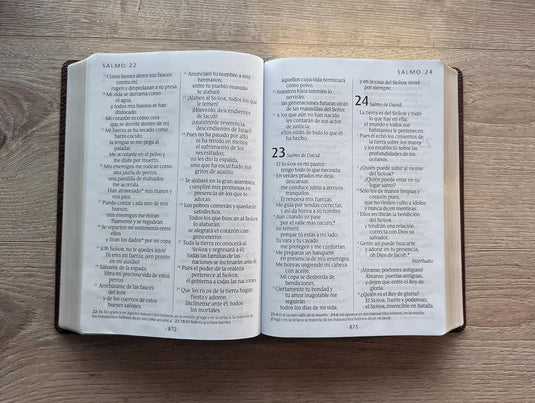 SALMO 22
Como leones abren sus fauces
contra mí;
rugen y despedazan a su presa.
Mi vida se derrama como
el agua,
y todos mis huesos se han
dislocado.
Mi corazón es como cera
que se derrite dentro de mí.
Mi fuerza se ha secado como
barro cocido;
la lengua se me pega al
paladar.
Me acostaste en el polvo y
me diste por muerto.
Mis enemigos me rodean como
una jauría de perros;
una pandilla de malvados
me acorrala.
Han atravesado* mis manos y
mis pies.
Puedo contar cada uno de mis
huesos;
mis enemigos me miran
fijamente y se regodean.
Se reparten mi vestimenta entre
ellos
y tiran los dados* por mi ropa.
¡Oh SEÑOR, no te quedes lejos!
Tú eres mi fuerza, ¡ven pronto
en mi auxilio!
Sálvame de la espada;
libra mi preciosa vida de estos
perros.
Arrebátame de las fauces
del león
y de los cuernos de estos
bueyes salvajes.
Anunciaré tu nombre a mis
hermanos;
entre tu pueblo reunido
te alabaré.
¡Alaben al SEÑOR, todos los que
le temen!
¡Hónrenlo, descendientes
de Jacob!
¡Muéstrenle reverencia,
descendientes de Israel!
Pues no ha pasado por alto
ni ha tenido en menos
el sufrimiento de los
necesitados;
no les dio la espalda,
sino que ha escuchado sus
gritos de auxilio.
Te alabaré en la gran asamblea;
cumpliré mis promesas en
presencia de los que te
adoran.
Los pobres comerán y quedarán
satisfechos;
todos los que buscan al SEÑOR
lo alabarán;
se alegrará el corazón con
gozo eterno.
Toda la tierra reconocerá al
SEÑOR y regresará a él;
todas las familias de las
naciones se inclinarán ante él.
Pues el poder de la realeza
pertenece al SEÑOR;
él gobierna a todas las
naciones.
Que los ricos de la tierra hagan
fiesta y adoren;
inclínense ante él, todos los
mortales,
872
SALMO 24
aquellos cuya vida terminará
como polvo.
Nuestros hijos también lo
servirán;
las generaciones futuras oirán
de las maravillas del Señor.
A los que aún no han nacido
les contarán de sus actos
de justicia;
ellos oirán de todo lo que él
ha hecho.
23 Salmo de David.
El SEÑOR es mi pastor;
tengo todo lo que necesito.
En verdes prados me deja
descansar;
me conduce junto a arroyos
tranquilos.
Él renueva mis fuerzas.
Me guía por sendas correctas,
y así da honra a su nombre.
Aun cuando yo pase
por el valle más oscuro,*
no temeré,
porque tú estás a mi lado.
Tu vara y tu cayado
me protegen y me confortan.
Me preparas un banquete
en presencia de mis enemigos.
Me honras ungiendo mi cabeza
con aceite.
Mi copa se desborda de
bendiciones.
Ciertamente tu bondad y
tu amor inagotable me
seguirán
todos los días de mi vida,
y en la casa del SEÑOR viviré
por siempre.
24 Salmo de David.
La tierra es del SEÑOR y todo
lo que hay en ella;
el mundo y todos sus
habitantes le pertenecen.
Pues él echó los cimientos de
la tierra sobre los mares
y los estableció sobre las
profundidades de los
océanos.
¿Quién puede subir al monte
del SEÑOR?
¿Quién puede estar en su
lugar santo?
Solo los de manos limpias y
corazón puro,
que no rinden culto a ídolos
y nunca dicen mentiras.
Ellos recibirán la bendición
del SEÑOR
y tendrán una relación
correcta con Dios su
salvador.
Gente así puede buscarte
y adorar en tu presencia,
oh Dios de Jacob.*
Interludio
¡Ábranse, portones antiguos!
Ábranse, puertas antiguas,
y dejen que entre el Rey de
gloria.
¿Quién es el Rey de gloria?
El SEÑOR, fuerte y poderoso;
el SEÑOR, invencible en
batalla.
873